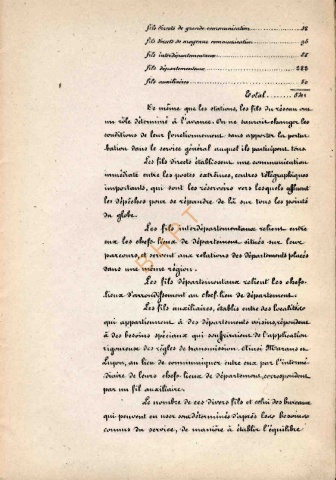 fils directs de grande communication
fils directs de moyenne communication
fils interdépartementaux
fils départementaux
fils auxiliaires
Total
De même que les stations, les fils du réseau ont
un rôle déterminé à l'avance. On ne saurait changer les
conditions de leur fonctionnement sans apporter la pertur-
bation dans le service général auquel ils participent tous.
Les fils directs établissent une communication
immédiate entre les postes extrêmes, centres télégraphiques
importants, qui sont les réservoirs vers lesquels affluent
les dépêches pour se répandre de là sur tous les points
du globe.
Les fils interdépartementaux relient entre
eux les chefs-lieux de département situés sur leur
parcours, et servent aux relations des départements placés
dans une même région.
Les fils départementaux relient les chefs-
lieux d'arrondissement au chef-lieu de département.
Les fils auxiliaires, établis entre des localités
qui appartiennent à des départements voisins, répondent
à des besoins spéciaux qui souffriraient de l'application
rigoureuse des règles de transmission. Ainsi Marans et
Luçon, au lieu de communiquer entre eux par l'intermé-
diaire de leurs chefs-lieux de département, correspondent
par un fil auxiliaire.
Le nombre de ces divers fils et celui des bureaux
qui peuvent en user sont déterminés d'après les besoins
connus du service, de manière à établir l'équilibre